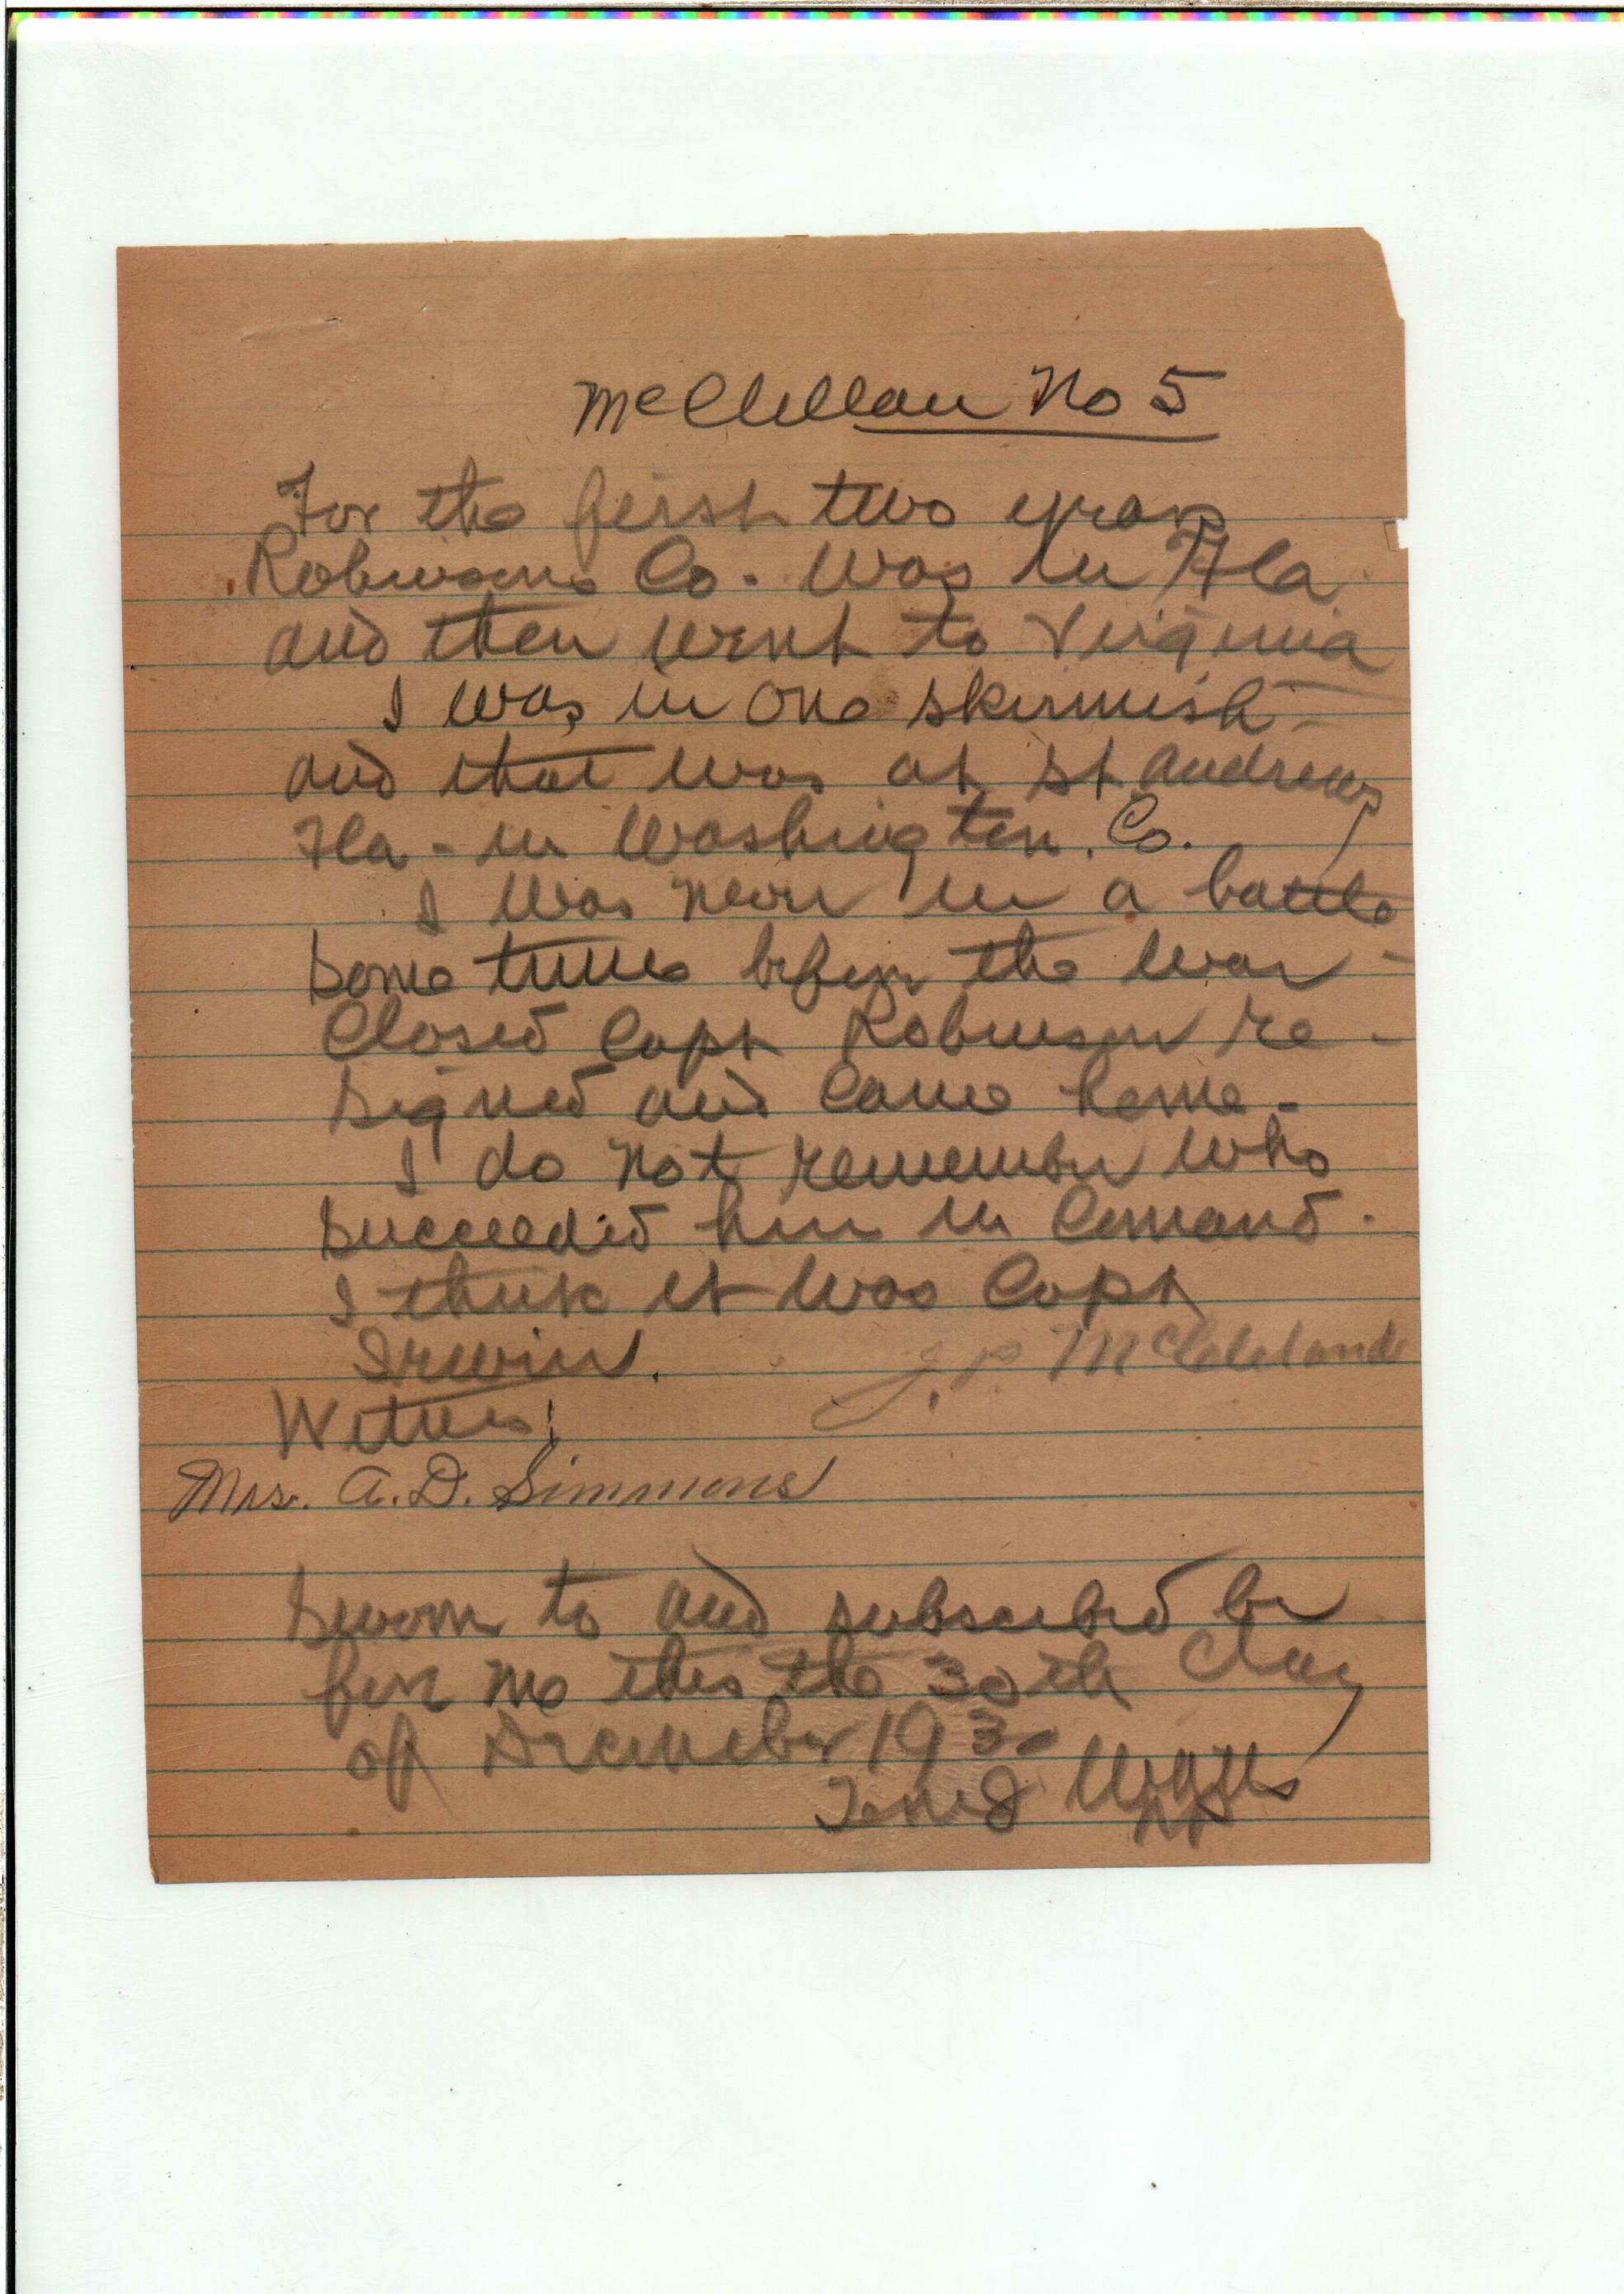 McClellan No 5
For the first two years
Robinsons Co. was in Fla
and then went to Virginia
I was in one skirmish
and that was at St. Andrews
Fla - in Washington. Co.
I was never in a battle
Some time before the war -
Closed Capt Robinson re -
signed and came home -
I do not remember who
succeeded him in Comand.
I think it was Capt
Irwin.
J. P. McClelland
Witness:
Mrs. A. D. Simmons
Sworn to and subscribed be
fore me this the 30th day
of December 1930
Watts
NP